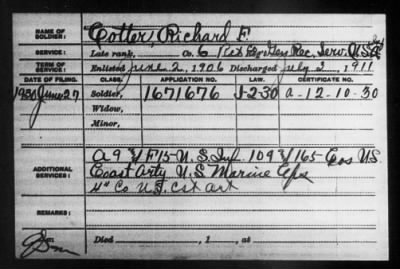 NAME OF SOLDIER: Cotter, Richard F.
SERVICE: Late rank, Co. 6 Rec Serv. U.S.A.
TERM OF SERVICE: Enlisted June 2, 1906 Discharged July 2, 1911
DATE OF FILING. CLASS. APPLICATION NO. LAW. CERTIFICATE NO.
1930 June 27 Soldier, 1671676 J-2-30 A-12-10-30
Widow,
Minor,
ADDITIONAL SERVICES: U.S. Inf. 109 165 Cos U.S.
Coast Arty U.S. Marine Cps
4" Co U.S. Cst Art
REMARKS:
Died , 1 , at